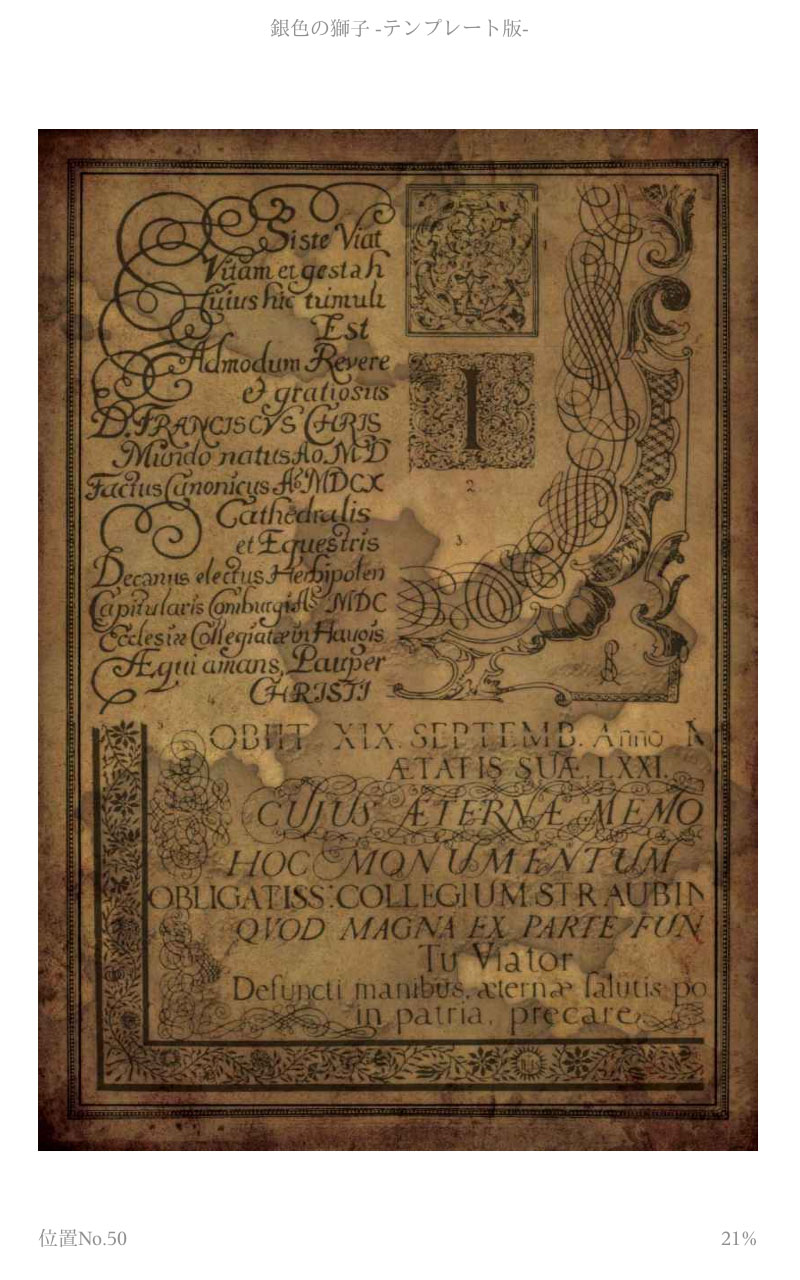 銀色の獅子 -テンプレート版-
Siste Viat
Vitam et gesta h
Cuius hic tumuli
Est
Admodum Revere
& gratiosus
D. FRANCISCVS CHRIS
Mundo natus Ao. MD
Factus Canonicus Ao. MDCX
Cathedralis
et Equestris
Decanus electus Herbipolen
Capitularis Comburgi MDC
Ecclesiæ Collegiatæ in Haugis
Æqui amans, Pauper
CHRISTI
1
I
2
3.
4
OBIIT XIX. SEPTEMB. Anno
ÆTATIS SUÆ. LXXI.
CUJUS ÆTERNÆ MEMO
HOC MONUMENTUM
OBLIGATISS: COLLEGIUM STRAUBIN
QVOD MAGNA EX PARTE FUN
Tu Viator
Defuncti manibus, æternæ salutis po
in patria, precare.
位置No.50
21%